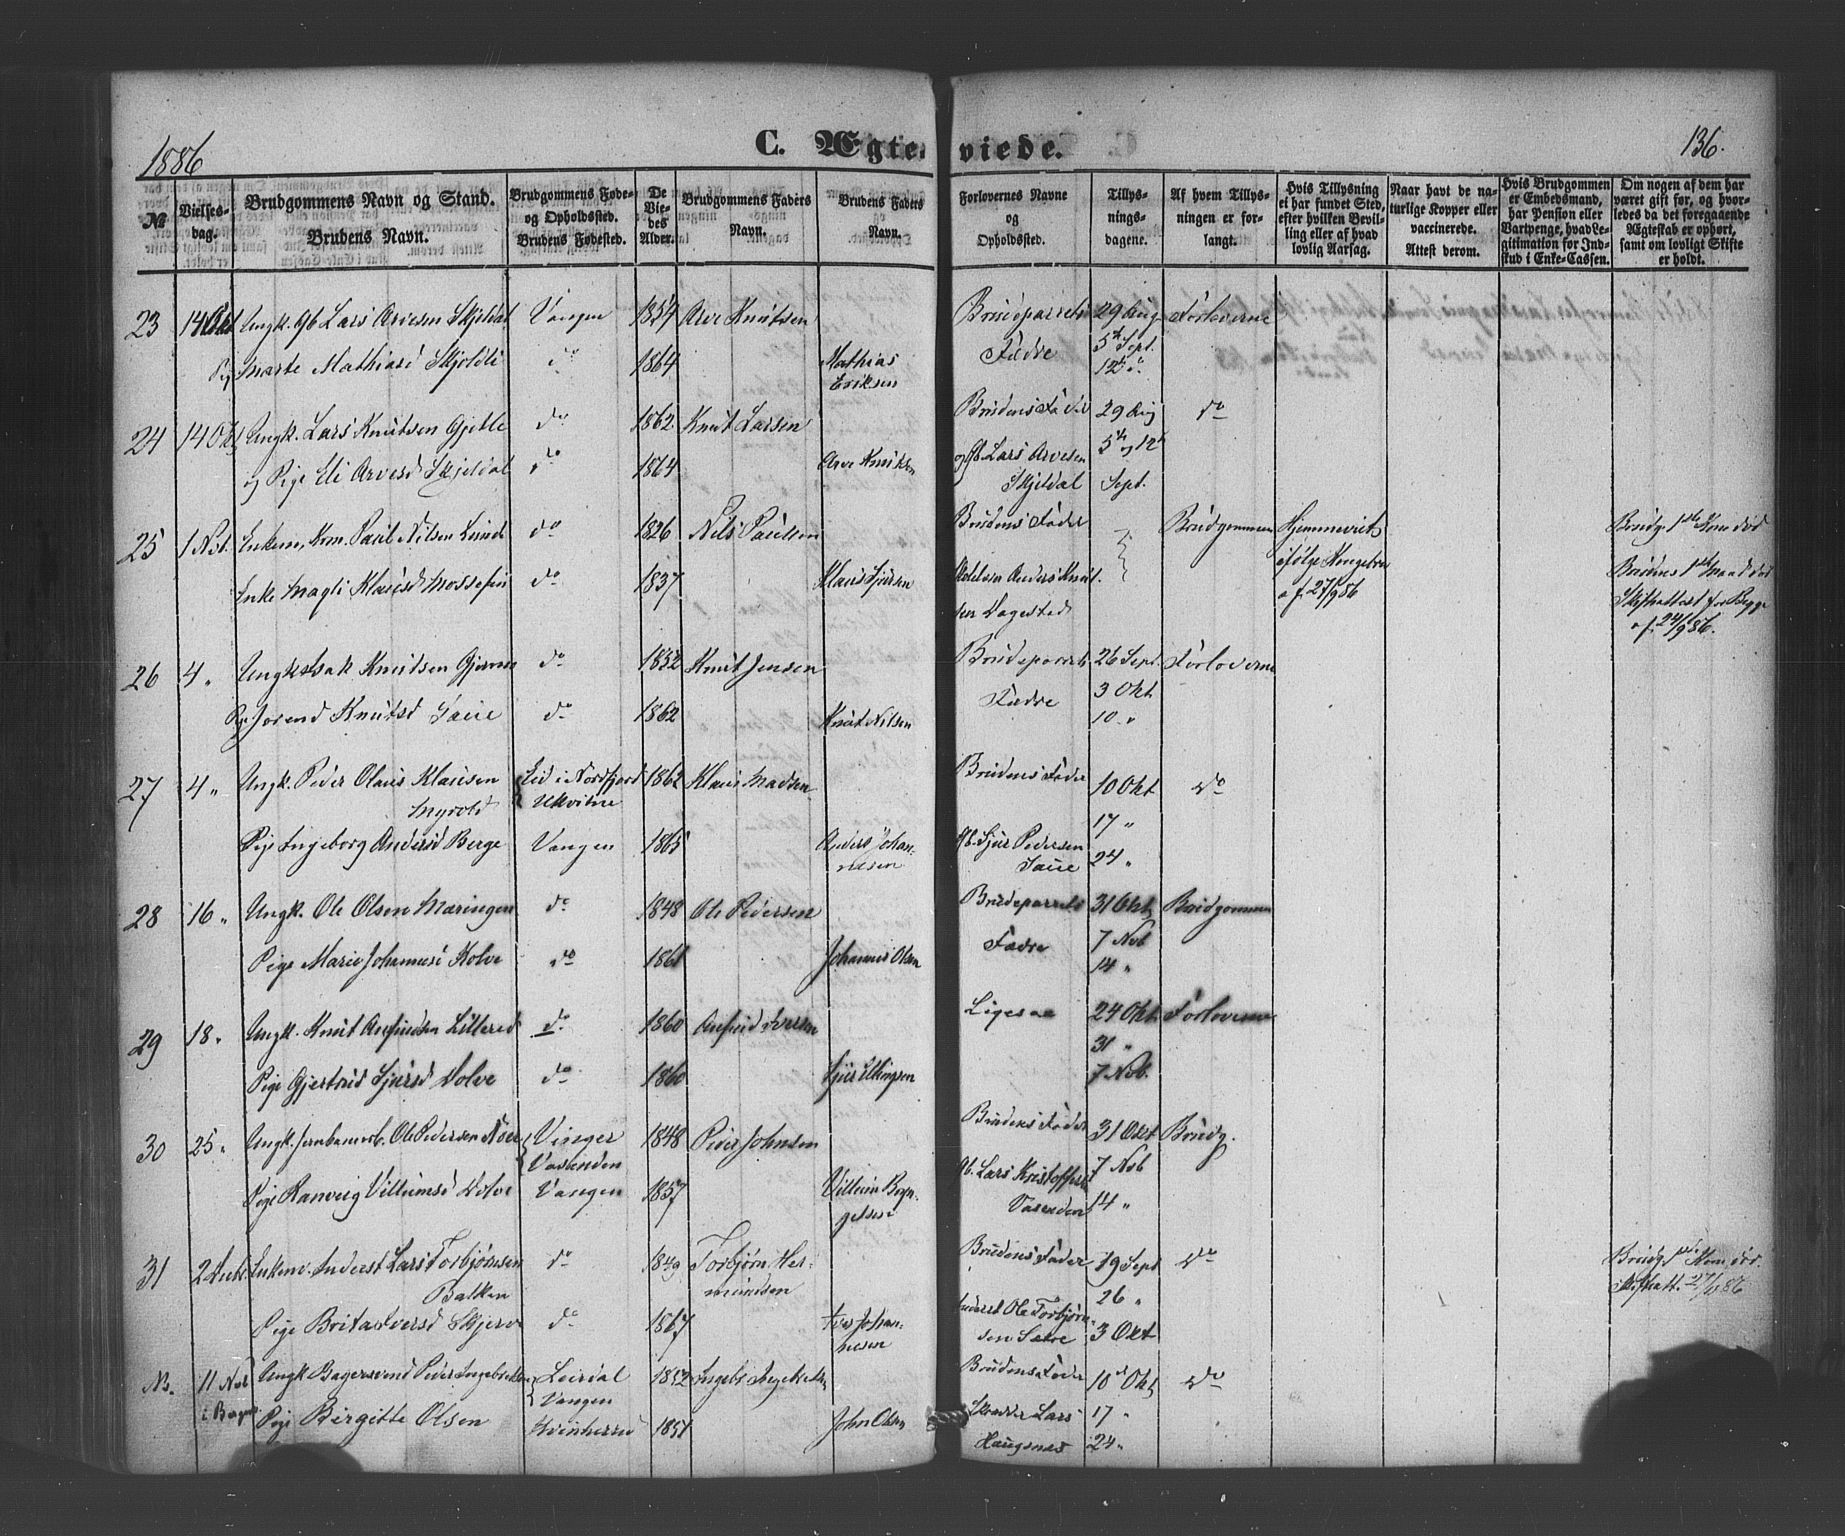 1886
C. Ægteviede.
136.
№
Vielses-dag.
Brudgommens Navn og Stand.
Brudens Navn.
Brudgommens Føde- og Opholdssted.
Brudens Fødested.
De Viedes Alder.
Brudgommens Faders Navn.
Brudens Faders Navn.
Forlovernes Navne og Opholdssted.
Tillysningsdagene.
Af hvem Tillysningen er forlangt.
Hvis Tillysning ei har fundet Sted, efter hvilken Bevilling eller af hvad lovlig Aarsag.
Naar havt de naturlige Kopper eller vaccinerede. Attest derom.
Hvis Brudgommen er Embedsmand, har Pension eller Vartpenge, hvad Legitimation for Indskud i Enke-Cassen.
Om nogen af dem har været gift før, og hvorledes da det foregaaende Ægteskab er ophørt, samt om lovligt Skifte er holdt.
23 14 Okt Ungk. Gb Lars Arvesen Skjeldal Vangen 1854 Arve Knutsen Brudeparrets 29 Aug Forloverne
Pig Marte Mathiasd do 1864 Mathias Eriksen Fædre 5te Sept. 12te "
24 14 Okt Ungk. Lars Knutsen Gjelle do 1862 Knut Larsen Brudens Fader 29 Aug do
og Pige Eli Arvesd Skjeldal do 1864 Arve Knutsen og Gb Lars Arvesen 5te og 12te
Skjeldal Sept.
25 1 Nov. Enkem. Paul Nilsen Lunde do 1826 Nils Paulsen Brudens Fader Brudgommen Hjemmeviet Brudg. 1ste Kone død
Enke Magli Klausd do 1837 Klaus Sjursen Anders Knutsen Dagestad ifølge Kongebrev af 27/9 86 Brudens 1ste Mand død
Skifteattest for Begge af 24/9 86.
26 4 " Ungk Isak Knudsen do 1852 Knut Jensen Brudeparrets 26 Sept. Forloverne
Pige Knutsd Saue do 1862 Knut Nilsen Fædre 3 Okt
10 "
27 4 " Ungk. Peder Olaus Klausen Myrold Eid i Nordfjord 1862 Klaus Madsen Brudens Fader 10 Okt do
17 "
Pige Ingeborg Andersd Berge Vangen 1865 Anders Johannesen Gb. Sjur Pedersen Saue 24 "
28 16 " Ungk. Ole Olsen Mæringen do 1848 Ole Pedersen Brudeparrets 31 Okt Brudgommen
Pige Marie Johannesd Kolve do 1861 Johannes Olsen Fædre 7 Nov
14 "
29 18 " Ungk. Knut Anfindsen do 1860 Iversen Ligesaa 24 Okt. Forloverne
31 "
Pige Gjertrud Sjursd Dolve do 1860 Sjur Ellingsen 7 Nov.
30 25 " Ungk. Ole Pedersen Vinger 1848 Peder Johnsen Brudens Fader 31 Okt Brudg.
Vasenden
Pige Ranveig Villumsd Dolve Vangen 1857 Gb. Lars Kristoffersen 7 Nov
Vasenden 14 "
31 2 Decbr. Enkem. Inderst Lars Torbjørnsen Balken do 1849 Torbjørn Hermundsen Brudens Fader 19 Sept do Brudg 1ste Kone død.
26 "
Pige Brita Iversd Skjerve do 1867 Iver Johannesen Inderst Ole Torbjørnsen Sætre 3 Okt
Nb. 11 Nov Ungk Bagersvend Peder Leirdal 1852 Brudens Fader 10de Okt do
Vangen
Pige Birgitte Olsen 1851 John Olsen Skræder Lars Haugsnæs 17 "
24 "